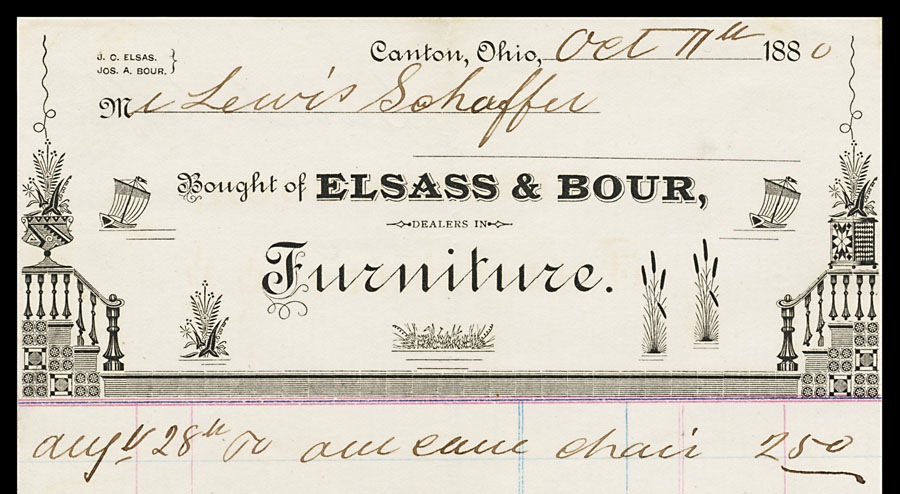 J. C. ELSAS.
JOS. A. BOUR. }
Canton, Ohio, Oct 11th 1880
Mr Lewis Schaffer
Bought of ELSASS & BOUR,
DEALERS IN
Furniture.
Augt 28th To one cane chair 2 50